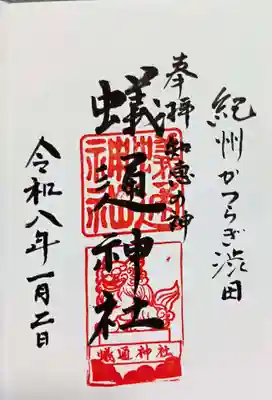 紀州かつらぎ渋田
奉拝
知恵の神
蟻通神社
令和八年一月二日
蟻通神社